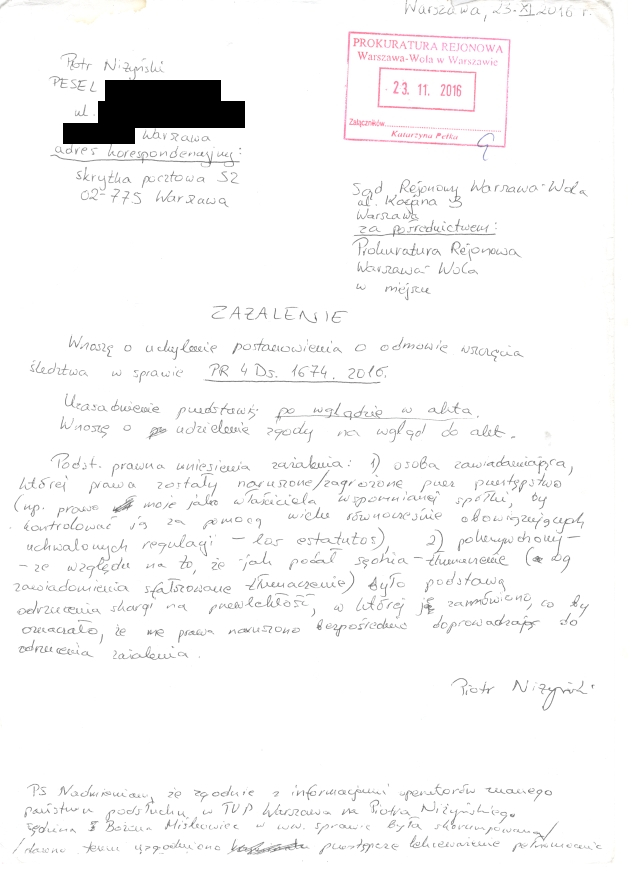 Warszawa, 23.XI.2016 r.
PROKURATURA REJONOWA
Warszawa-Wola w Warszawie
23. 11. 2016
Załączników
Katarzyna Pełka
Piotr Niżyński
PESEL
ul.
Warszawa
adres korespondencyjny:
skrytka pocztowa 52
02-775 Warszawa
Sąd Rejonowy Warszawa-Wola
al. Kocjana 3
Warszawa
za pośrednictwem:
Prokuratura Rejonowa
Warszawa-Wola
w miejscu
ZAŻALENIE
Wnoszę o uchylenie postanowienia o odmowie wszczęcia
śledztwa w sprawie PR 4 Ds. 1674. 2016.
Uzasadnienie przedstawię po wglądzie w akta.
Wnoszę o udzielenie zgody na wgląd do akt.
Podst. prawna wniesienia zażalenia: 1) osoba zawiadamiająca,
której prawa zostały naruszone/zagrożone przez przestępstwo
(np. prawo moje jako właściciela wspomnianej spółki, by
kontrolować ją za pomocą wielu równocześnie obowiązujących
uchwalonych regulacji – los estatutos), 2) pokrzywdzony –
– ze względu na to, że – jak podał sędzia – tłumaczenie (wg
zawiadomienia sfałszowane tłumaczenie) było podstawą
odrzucenia skargi na przewlekłość, w której je zamówiono, co by
oznaczało, że me prawa naruszono bezpośrednio doprowadzając do
odrzucenia zażalenia.
Piotr Niżyński
PS Nadmieniam, że zgodnie z informacjami operatorów znanego
państwu podsłuchu, w TVP Warszawa na Piotra Niżyńskiego
sędzina Bożena Miśkowiec w ww. sprawie była skorumpowana/
/dawno temu uzgodniono przestępcze lekceważenie